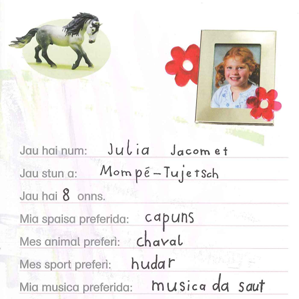 Jau hai num: Julia Jacomet
Jau stun a: Mompé-Tujetsch
Jau hai 8 onns.
Mia spaisa preferida: capuns
Mes animal preferì: chaval
Mes sport preferì: hudar
Mia musica preferida: musica da saut